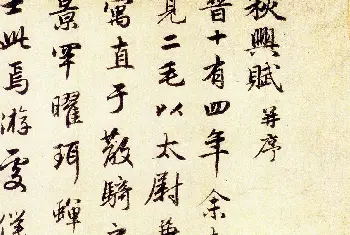 秋興賦 并序
晉十有四年余
見二毛以太尉
寓直于散騎之
景罕曜珥蟬
士此焉游處僕